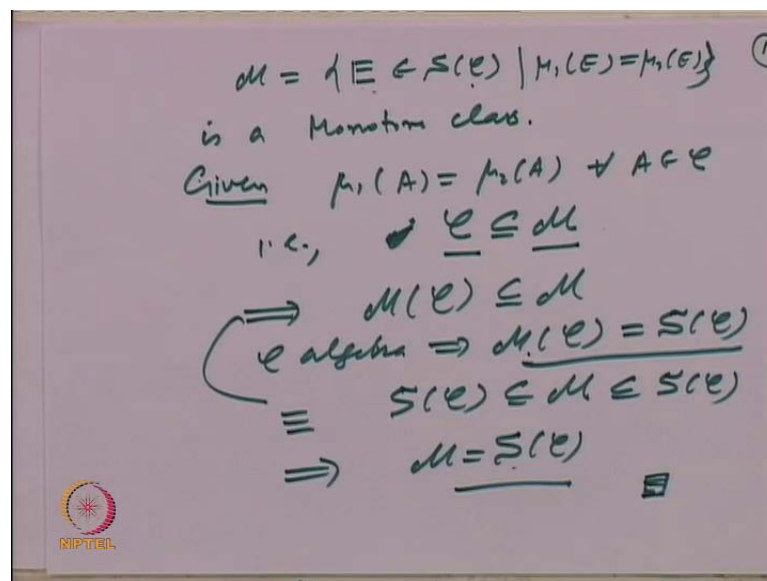 ℳ = {E ∈ S(𝒞) | μ₁(E) = μ₂(E)}
is a Monotone class.
Given μ₁(A) = μ₂(A) ∀ A ∈ 𝒞
i.e., 𝒞 ⊆ ℳ
⟹ ℳ(𝒞) ⊆ ℳ
𝒞 algebra ⟹ ℳ(𝒞) = S(𝒞)
≡ S(𝒞) ⊆ ℳ ⊆ S(𝒞)
⟹ ℳ = S(𝒞)
NPTEL